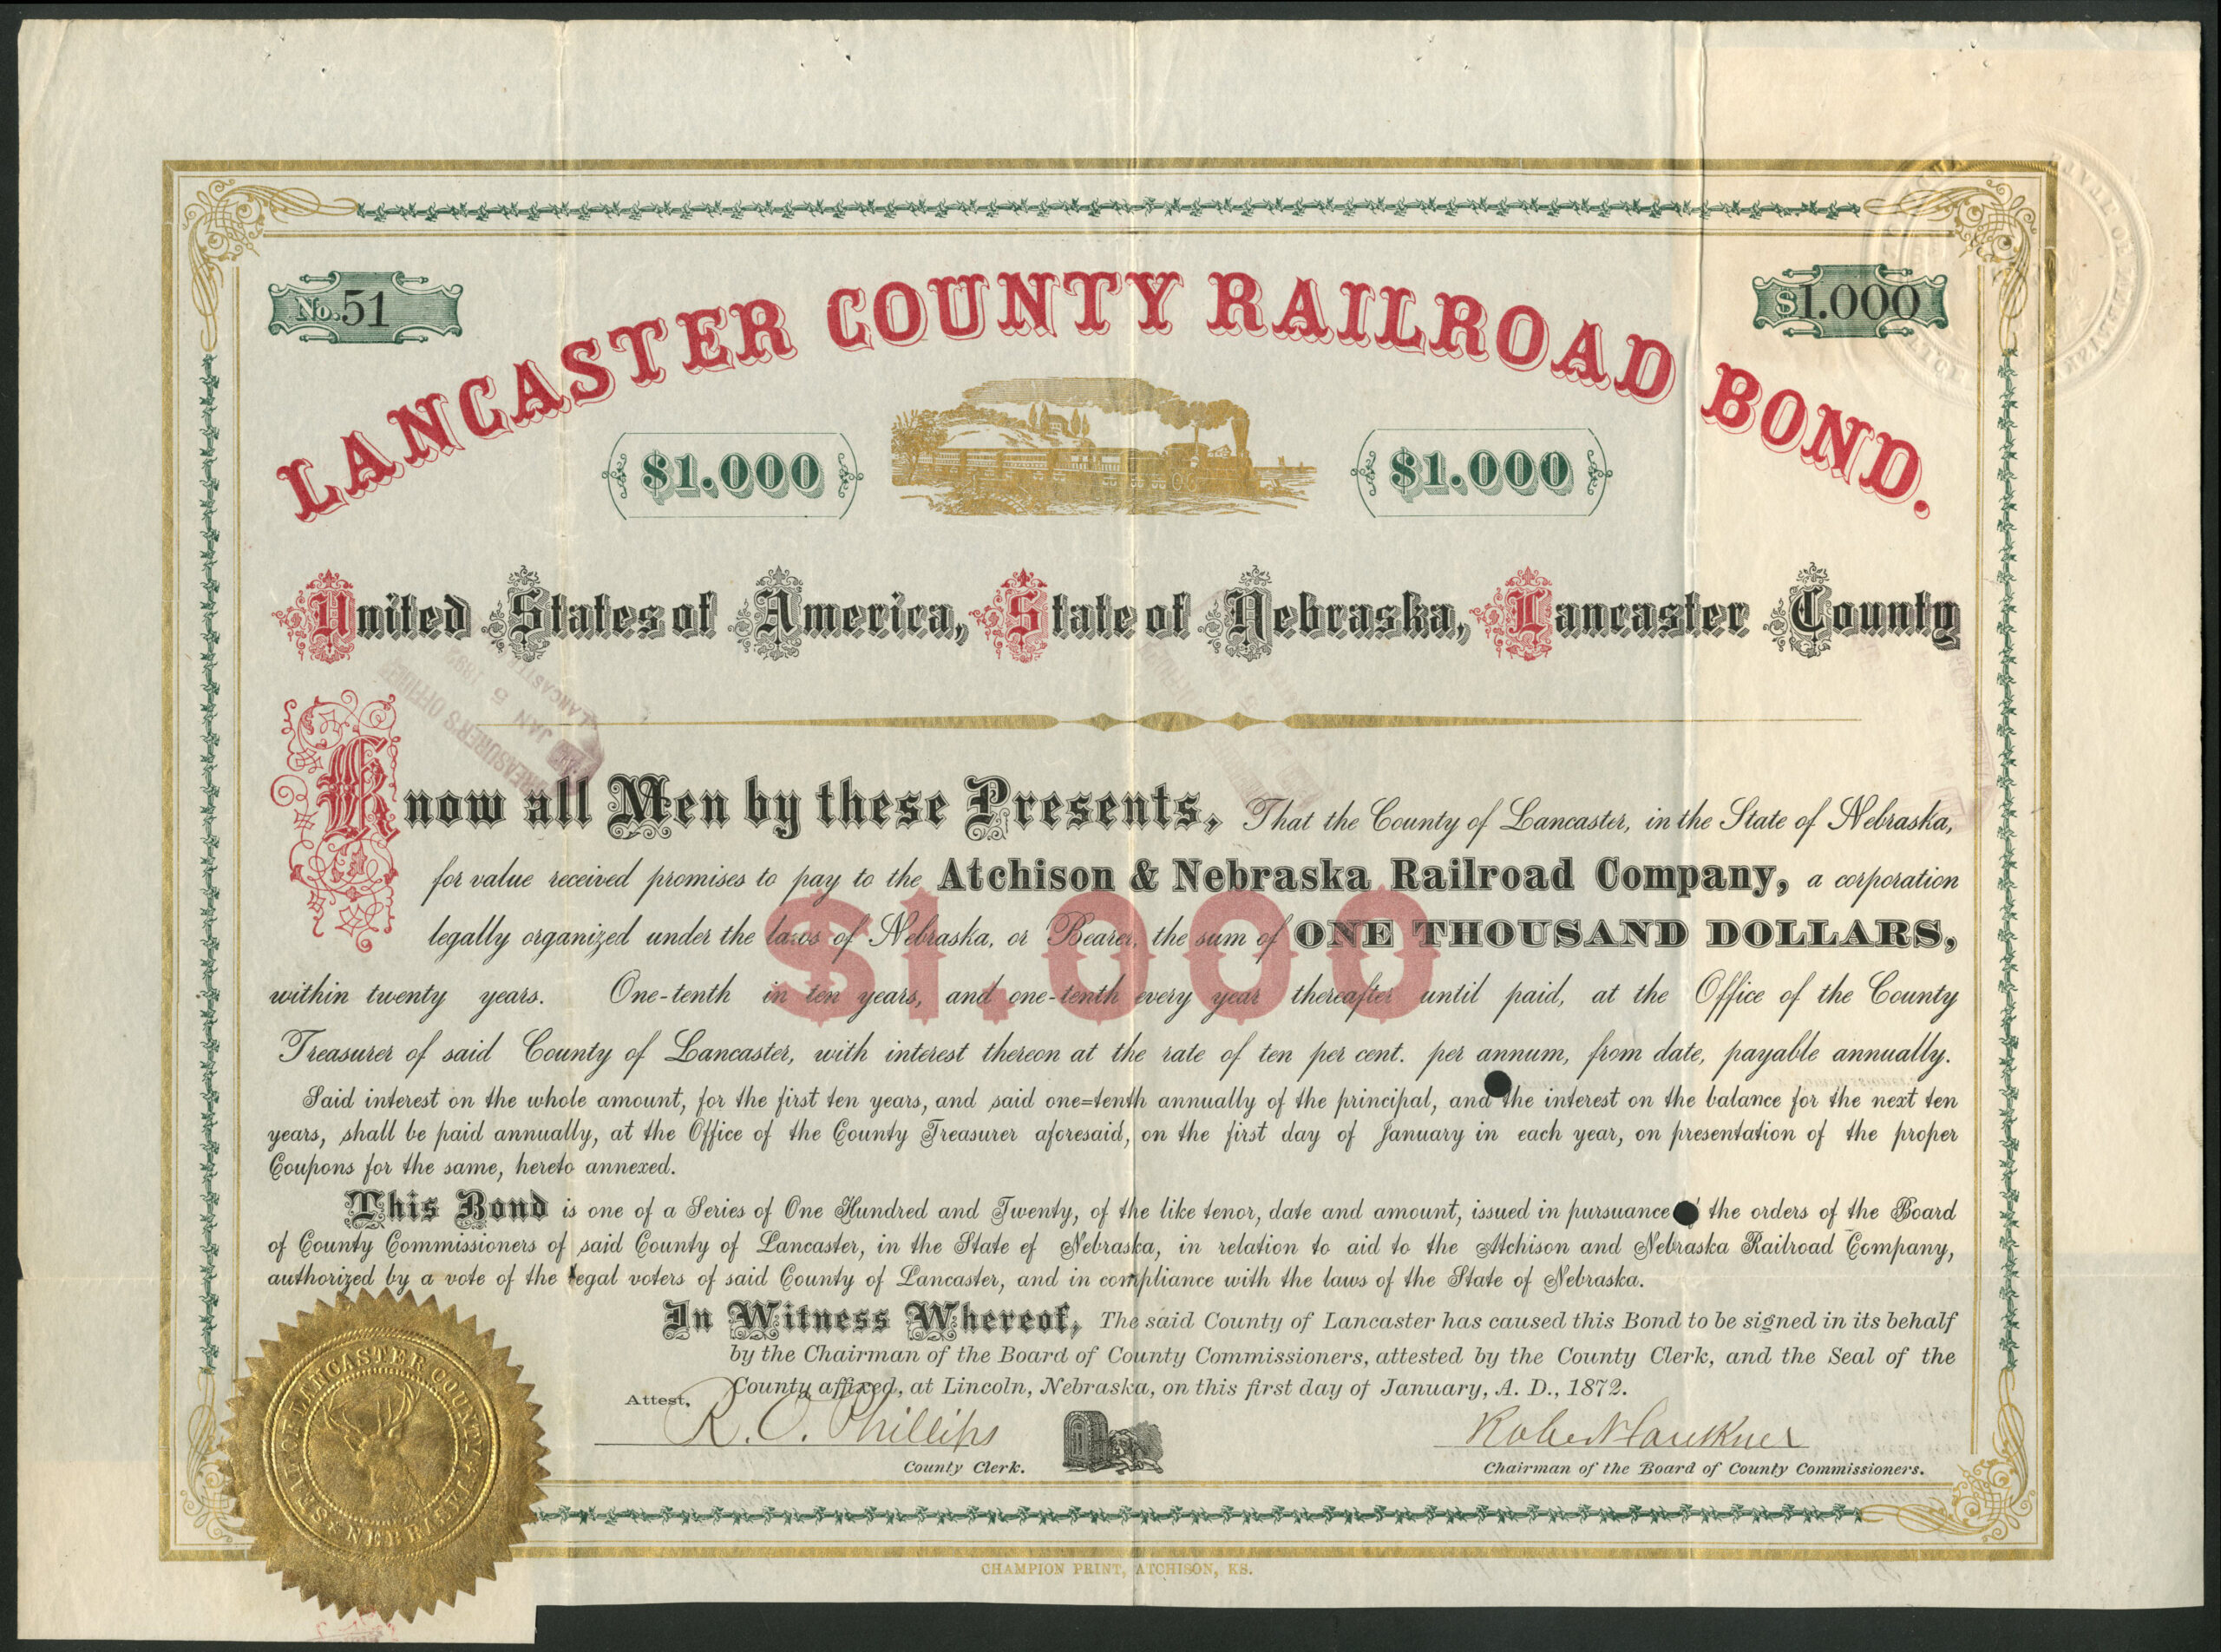 No. 51
$1.000
LANCASTER COUNTY RAILROAD BOND.
$1.000
$1.000
United States of America, State of Nebraska, Lancaster County
TREASURER'S OFFICE
JAN 5 189
LANCASTE
Know all Men by these Presents, That the County of Lancaster, in the State of Nebraska,
for value received promises to pay to the Atchison & Nebraska Railroad Company, a corporation
legally organized under the laws of Nebraska, or Bearer, the sum of ONE THOUSAND DOLLARS,
$1.000
within twenty years. One-tenth in ten years, and one-tenth every year thereafter until paid, at the Office of the County
Treasurer of said County of Lancaster, with interest thereon at the rate of ten per cent. per annum, from date, payable annually.
Said interest on the whole amount, for the first ten years, and said one=tenth annually of the principal, and the interest on the balance for the next ten
years, shall be paid annually, at the Office of the County Treasurer aforesaid, on the first day of January in each year, on presentation of the proper
Coupons for the same, hereto annexed.
This Bond is one of a Series of One Hundred and Twenty, of the like tenor, date and amount, issued in pursuance the orders of the Board
of County Commissioners of said County of Lancaster, in the State ef Nebraska, in relation to aid to the Atchison and Nebraska Railroad Company,
authorized by a vote of the legal voters of said County of Lancaster, and in compliance with the laws of the State of Nebraska.
In Witness Whereof, The said County of Lancaster has caused this Bond to be signed in its behalf
by the Chairman of the Board of County Commissioners, attested by the County Clerk, and the Seal of the
County affixed, at Lincoln, Nebraska, on this first day of January, A. D., 1872.
Attest,
R. O. Phillips
County Clerk.
Robert Faulkner
Chairman of the Board of County Commissioners.
LANCASTER COUNTY
NEBR
CHAMPION PRINT, ATCHISON, KS.